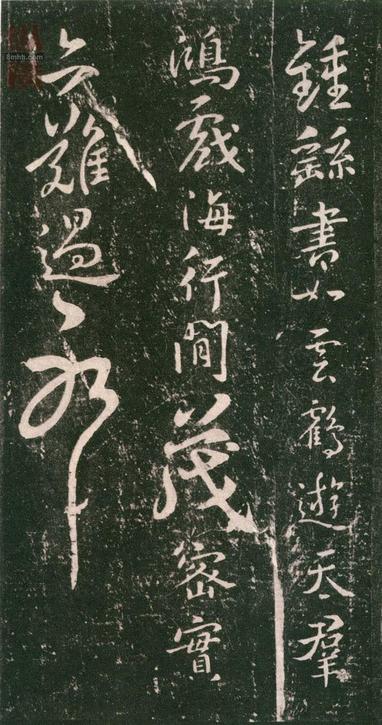 鍾繇書如雲鶴遊天羣
鴻戲海行間茂密實
亦難過耶
8mhh.com